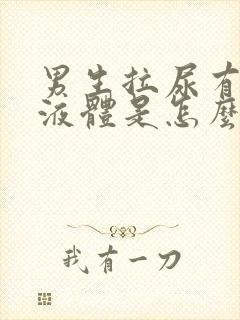 男生拉尿有
液體是怎麼
我有一刀